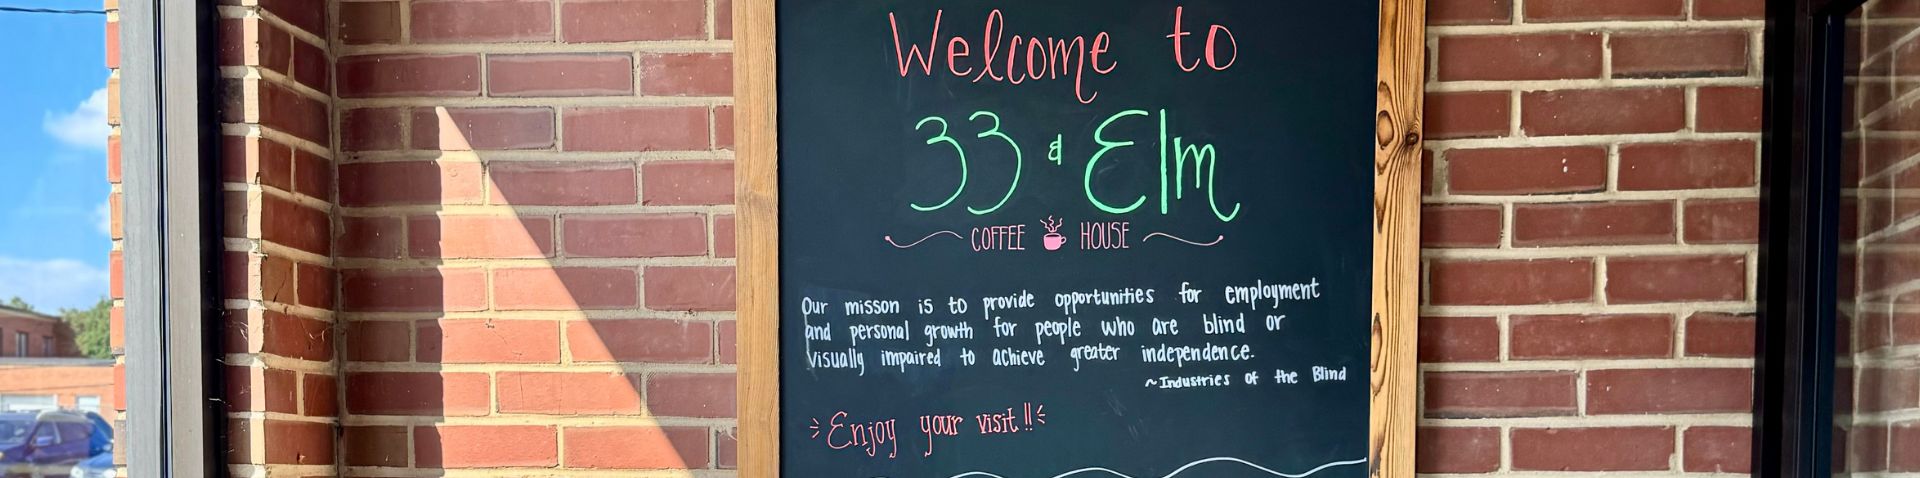 Welcome to
33 & Elm
COFFEE HOUSE
Our misson is to provide opportunities for employment
and personal growth for people who are blind or
visually impaired to achieve greater independence.
~Industries of the Blind
Enjoy your visit!!